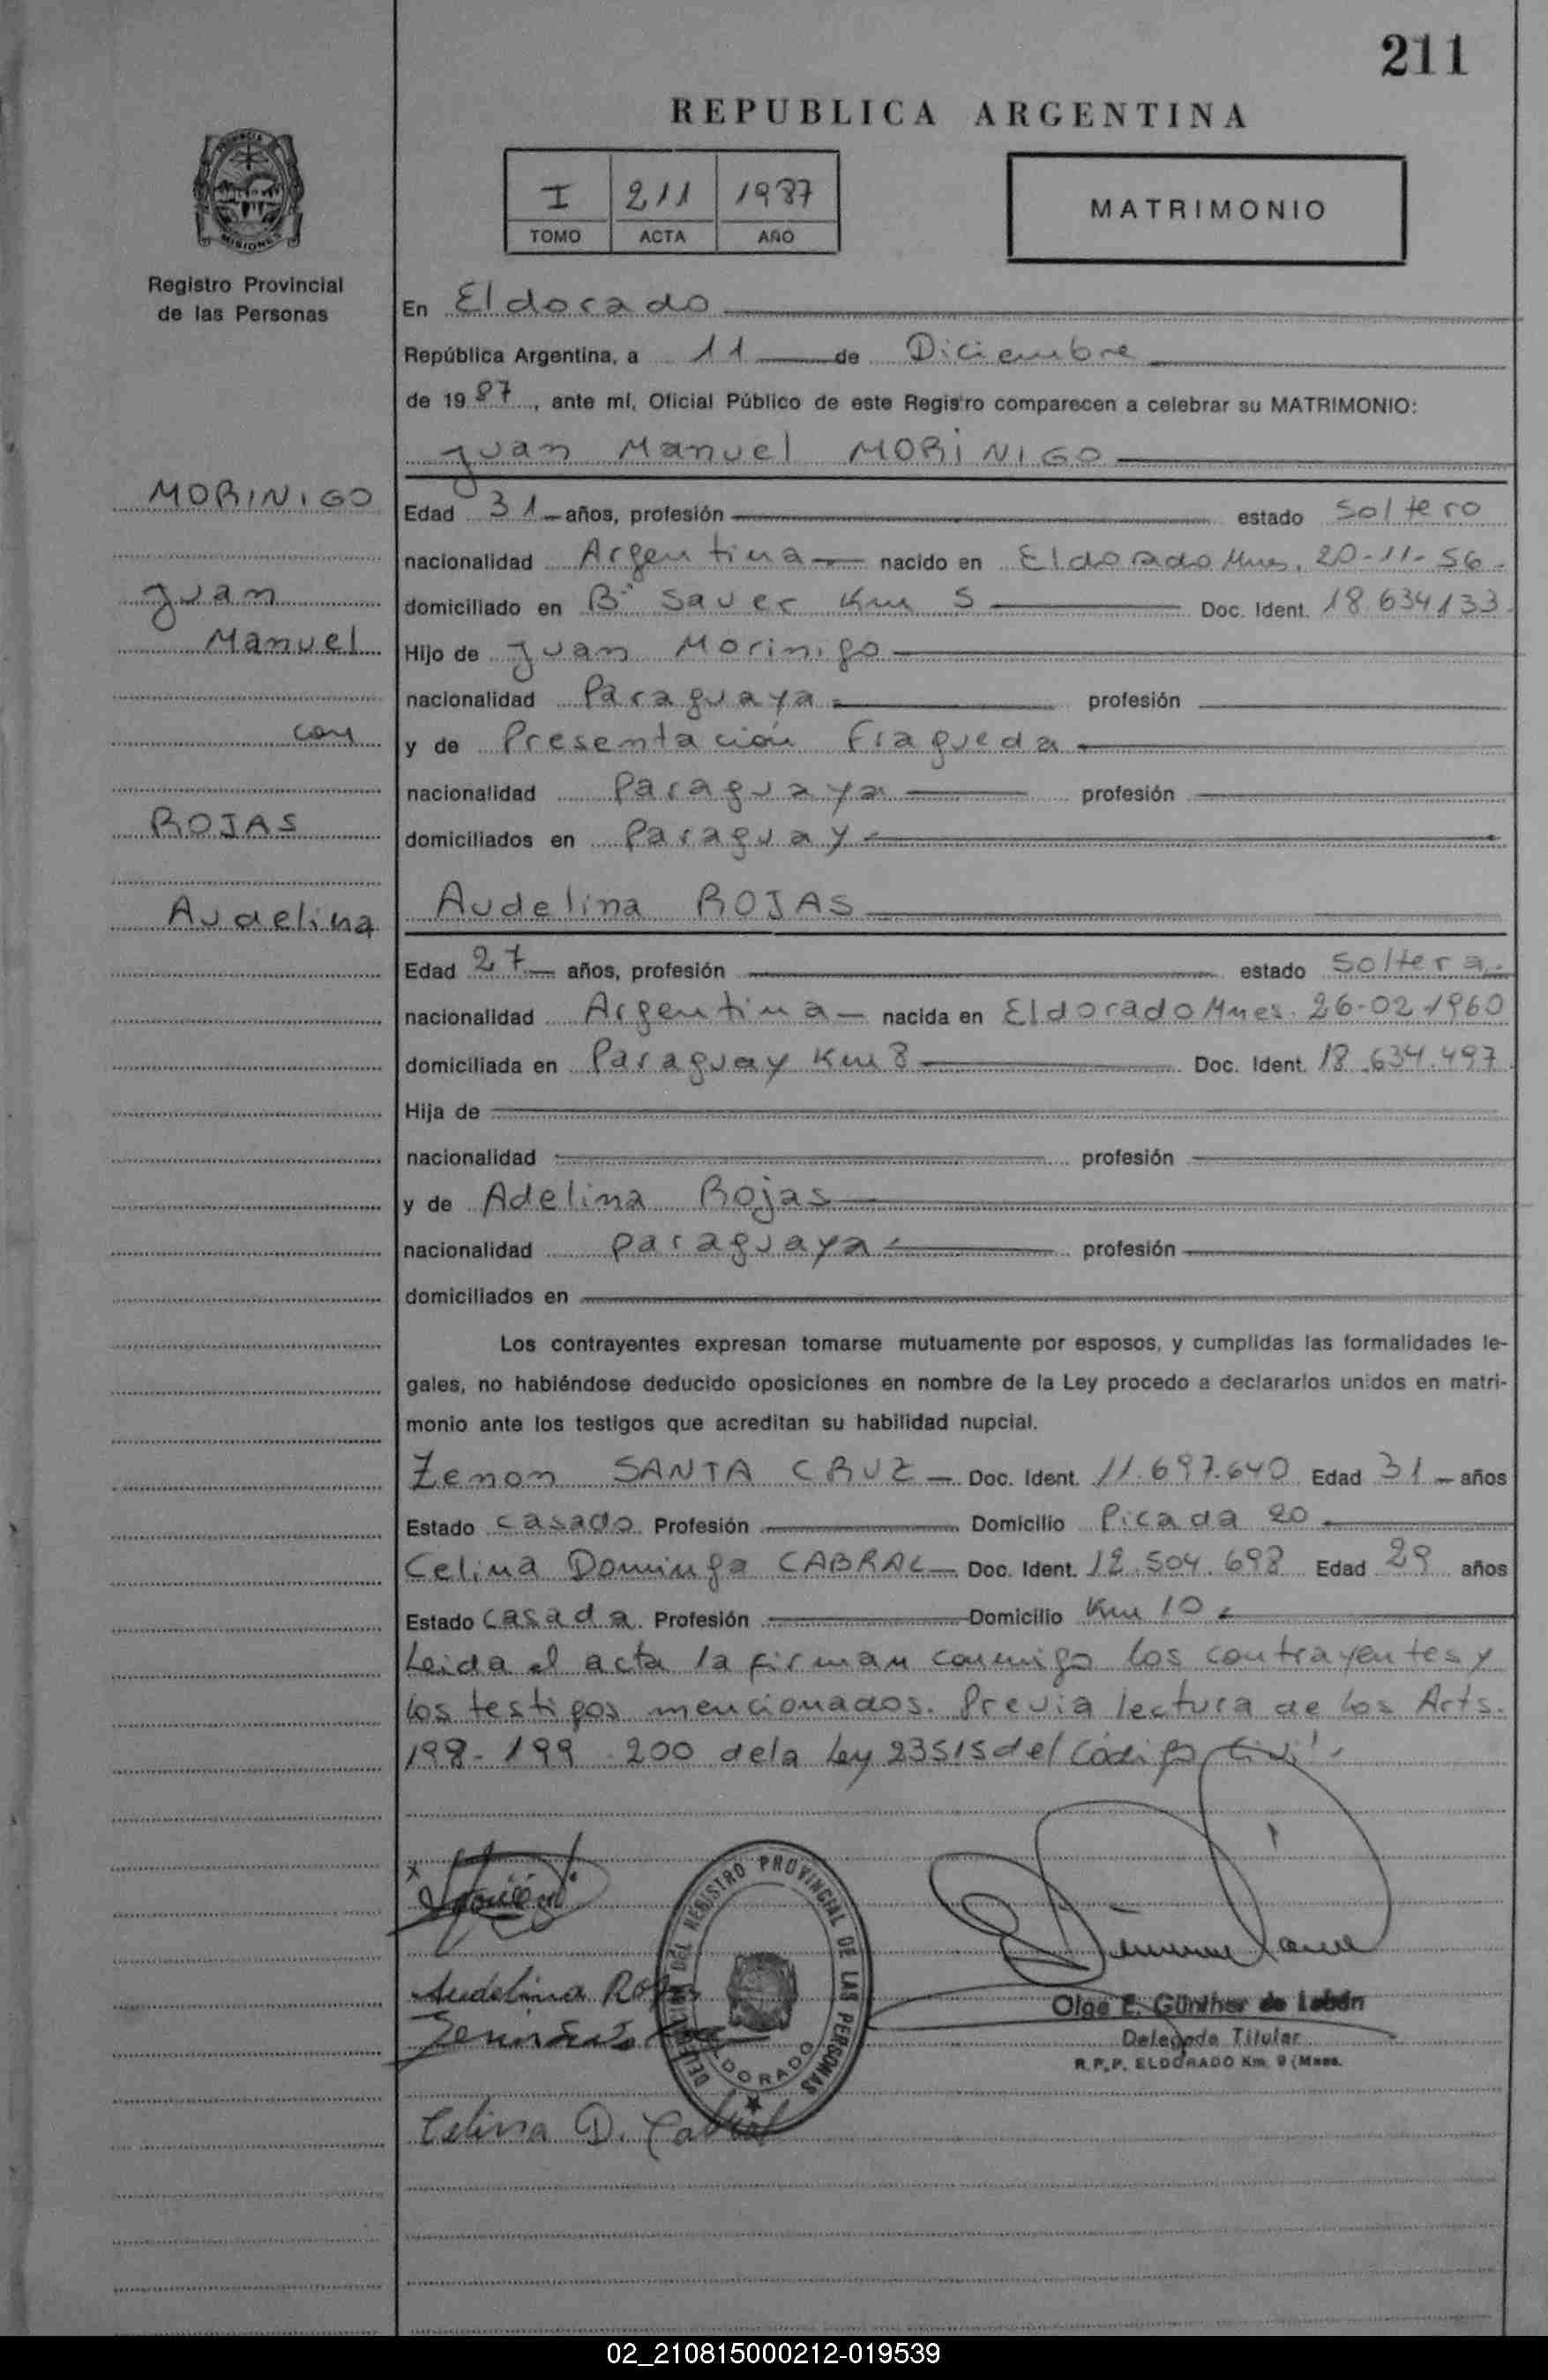 211
REPUBLICA ARGENTINA
I 211 1987
TOMO ACTA AÑO
MATRIMONIO
Registro Provincial
de las Personas
En Eldorado
República Argentina, a 11 de Diciembre
de 1987, ante mí, Oficial Público de este Registro comparecen a celebrar su MATRIMONIO:
Juan Manuel MORINIGO
MORINIGO
Edad 31 años, profesión estado Soltero
nacionalidad Argentina nacido en Eldorado Mnes. 20-11-56.
Juan
domiciliado en Bº Sauer Km 5 Doc. Ident. 18.634133.
Manuel
Hijo de Juan Morinigo
nacionalidad Paraguaya profesión
con
y de Presentación Fragueda
nacionalidad Paraguaya profesión
ROJAS
domiciliados en Paraguay
Audelina
Audelina ROJAS
Edad 27 años, profesión estado Soltera.
nacionalidad Argentina nacida en Eldorado Mnes. 26-02-1960
domiciliada en Paraguay Km 8 Doc. Ident. 18.634.497
Hija de
nacionalidad profesión
y de Adelina Rojas
nacionalidad paraguaya profesión
domiciliados en
Los contrayentes expresan tomarse mutuamente por esposos, y cumplidas las formalidades le-
gales, no habiéndose deducido oposiciones en nombre de la Ley procedo a declararlos unidos en matri-
monio ante los testigos que acreditan su habilidad nupcial.
Zenon SANTA CRUZ Doc. Ident. 11.697.640 Edad 31 años
Estado casado Profesión Domicilio Picada 20
Celina Dominga CABRAL Doc. Ident. 12.504.698 Edad 29 años
Estado casada. Profesión Domicilio Km 10
Leida el acta la firman conmigo los contrayentes y
los testigos mencionados. Previa lectura de los Arts.
198-199-200 dela Ley 23515 del Código Civil
x
DEL REGISTRO PROVINCIAL DE LAS PERSONAS
ELDORADO
Audelina Rojas
Olga E. Günther de Labán
Delegada Titular
R.P.P. ELDORADO Km. 9 (Mnes.
Celina D. Cabral
02_210815000212-019539